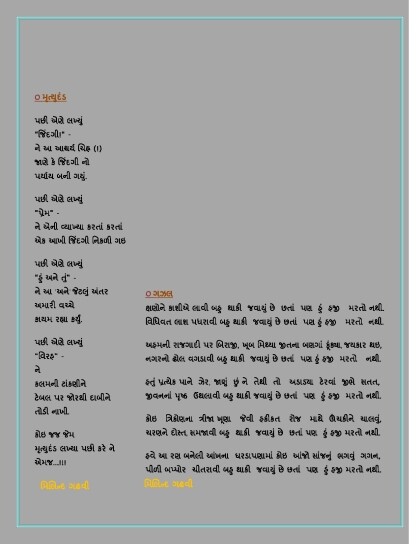 ૦ મૃત્યુદંડ
પછી એણે લખ્યું
"જિંદગી!" -
ને આ આશ્ચર્ય ચિહ્ન (!)
જાણે કે જિંદગી નો
પર્યાય બની ગયું.
પછી એણે લખ્યું
"પ્રેમ" -
ને એની વ્યાખ્યા કરતાં કરતાં
એક આખી જિંદગી નિકળી ગઇ
પછી એણે લખ્યું
"હું અને તું" -
ને આ 'અને જેટલું અંતર
અમારી વચ્ચે
કાયમ રહ્યા કર્યું.
પછી એણે લખ્યું
"વિરહ" -
ને
કલમની ટાંકણીને
ટેબલ પર જોરથી દાબીને
તોડી નાખી.
કોઇ જજ જેમ
મૃત્યુદંડ લખ્યા પછી કરે ને
એમજ...!!!
મિલિન્દ ગઢવી
૦ ગઝલ
ક્ષણોને કાશીએ લાવી બહુ થાકી જવાયું છે છતાં પણ હું હજી મરતો નથી.
વિધિવત લાશ પધરાવી બહુ થાકી જવાયું છે છતાં પણ હું હજી મરતો નથી.
અહમની રાજગાદી પર બિરાજી, ખૂબ મિથ્યા જીતના બણગાં ફૂંક્યા, જયકાર થઇ,
નગરનો ઢોલ વગડાવી બહુ થાકી જવાયું છે છતાં પણ હું હજી મરતો નથી.
હતું પ્રત્યેક પાને ઝેર, જાણું છું ને તેથી તો અડાડ્યા ટેરવાં જીભે સતત,
જીવનનાં પૃષ્ઠ ઉથલાવી બહુ થાકી જવાયું છે છતાં પણ હું હજી મરતો નથી.
કોઇ ત્રિકોણના ત્રીજા ખૂણા જેવી હકીકત રોજ માથે ઊંચકીને ચાલવું,
ચરણને દોસ્ત, સમજાવી બહુ થાકી જવાયું છે છતાં પણ હું હજી મરતો નથી.
હવે આ રણ બનેલી આંખના ઘરડાપણામાં કોઇ આંજો સાંજનું ભગવું ગગન,
પીળી બપ્પોર ચીતરાવી બહુ થાકી જવાયું છે છતાં પણ હું હજી મરતો નથી.
મિલિન્દ ગઢવી